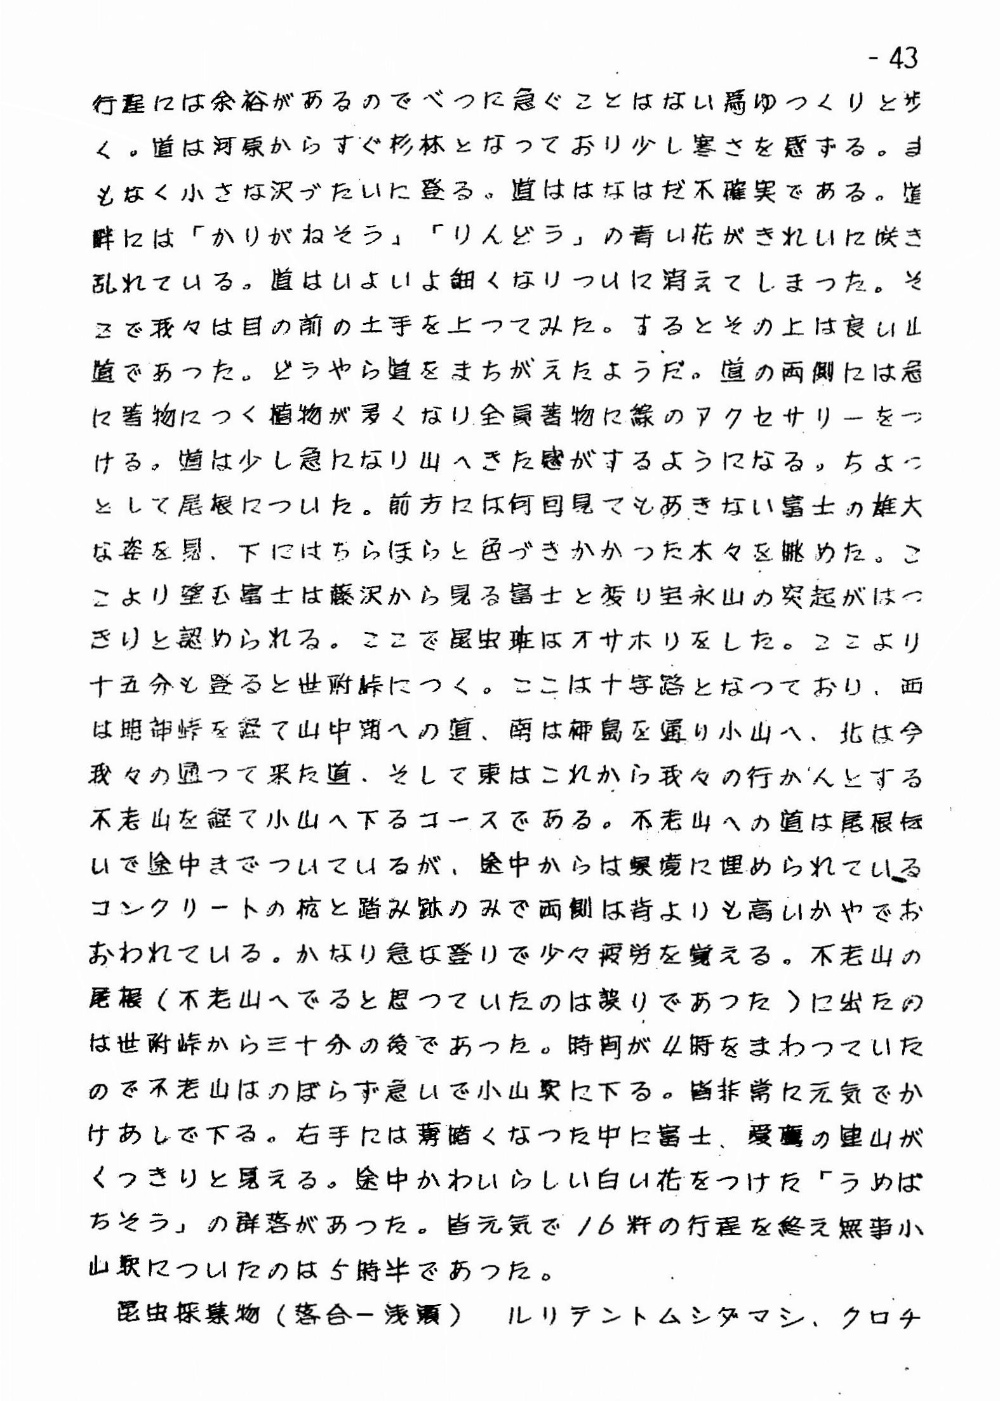 - 43
行程には余裕があるのでべつに急ぐことはない為ゆつくりと歩
く。道は河原からすぐ杉林となっており少し寒さを感ずる。ま
もなく小さな沢づたいに登る。道ははなはだ不確実である。道
畔には「かりがねそう」「りんどう」の青い花がきれいに咲き
乱れている。道はいよいよ細くなりついに消えてしまつた。そ
こで我々は目の前の土手を上つてみた。するとその上は良い山
道であつた。どうやら道をまちがえたようだ。道の両側には急
に着物につく植物が多くなり全員着物に緑のアクセサリーをつ
ける。道は少し急になり山へきた感がするようになる。ちよつ
として尾根についた。前方には何回見てもあきない富士の雄大
な姿を見、下にはちらほらと色づきかかつた木々を眺めた。こ
こより望む富士は藤沢から見る富士と変り宝永山の突起がはつ
きりと認められる。ここで昆虫班はオサホリをした。ここより
十五分も登ると世附峠につく。ここは十字路となつており、西
は明神峠を経て山中湖への道、南は柳島を通り小山へ、北は今
我々の通つて来た道、そして東はこれから我々の行かんとする
不老山を経て小山へ下るコースである。不老山への道は尾根伝
いで途中までついているが、途中からは県境に埋められている
コンクリートの杭と踏み跡のみで両側は背よりも高いかやでお
おわれている。かなり急な登りで少々疲労を覚える。不老山の
尾根(不老山へでると思つていたのは誤りであつた)に出たの
は世附峠から三十分の後であった。時間が4時をまわつていた
ので不老山はのぼらず急いで小山駅に下る。皆非常に元気でか
けあしで下る。右手には薄暗くなつた中に富士、愛鷹の連山が
くっきりと見える。途中かわいらしい白い花をつけた「うめば
ちそう」の群落があつた。皆元気で16粁の行程を終え無事小
山駅についたのは5時半であつた。
昆虫採集物(落合ー浅瀬) ルリテントムシダマシ、クロチ